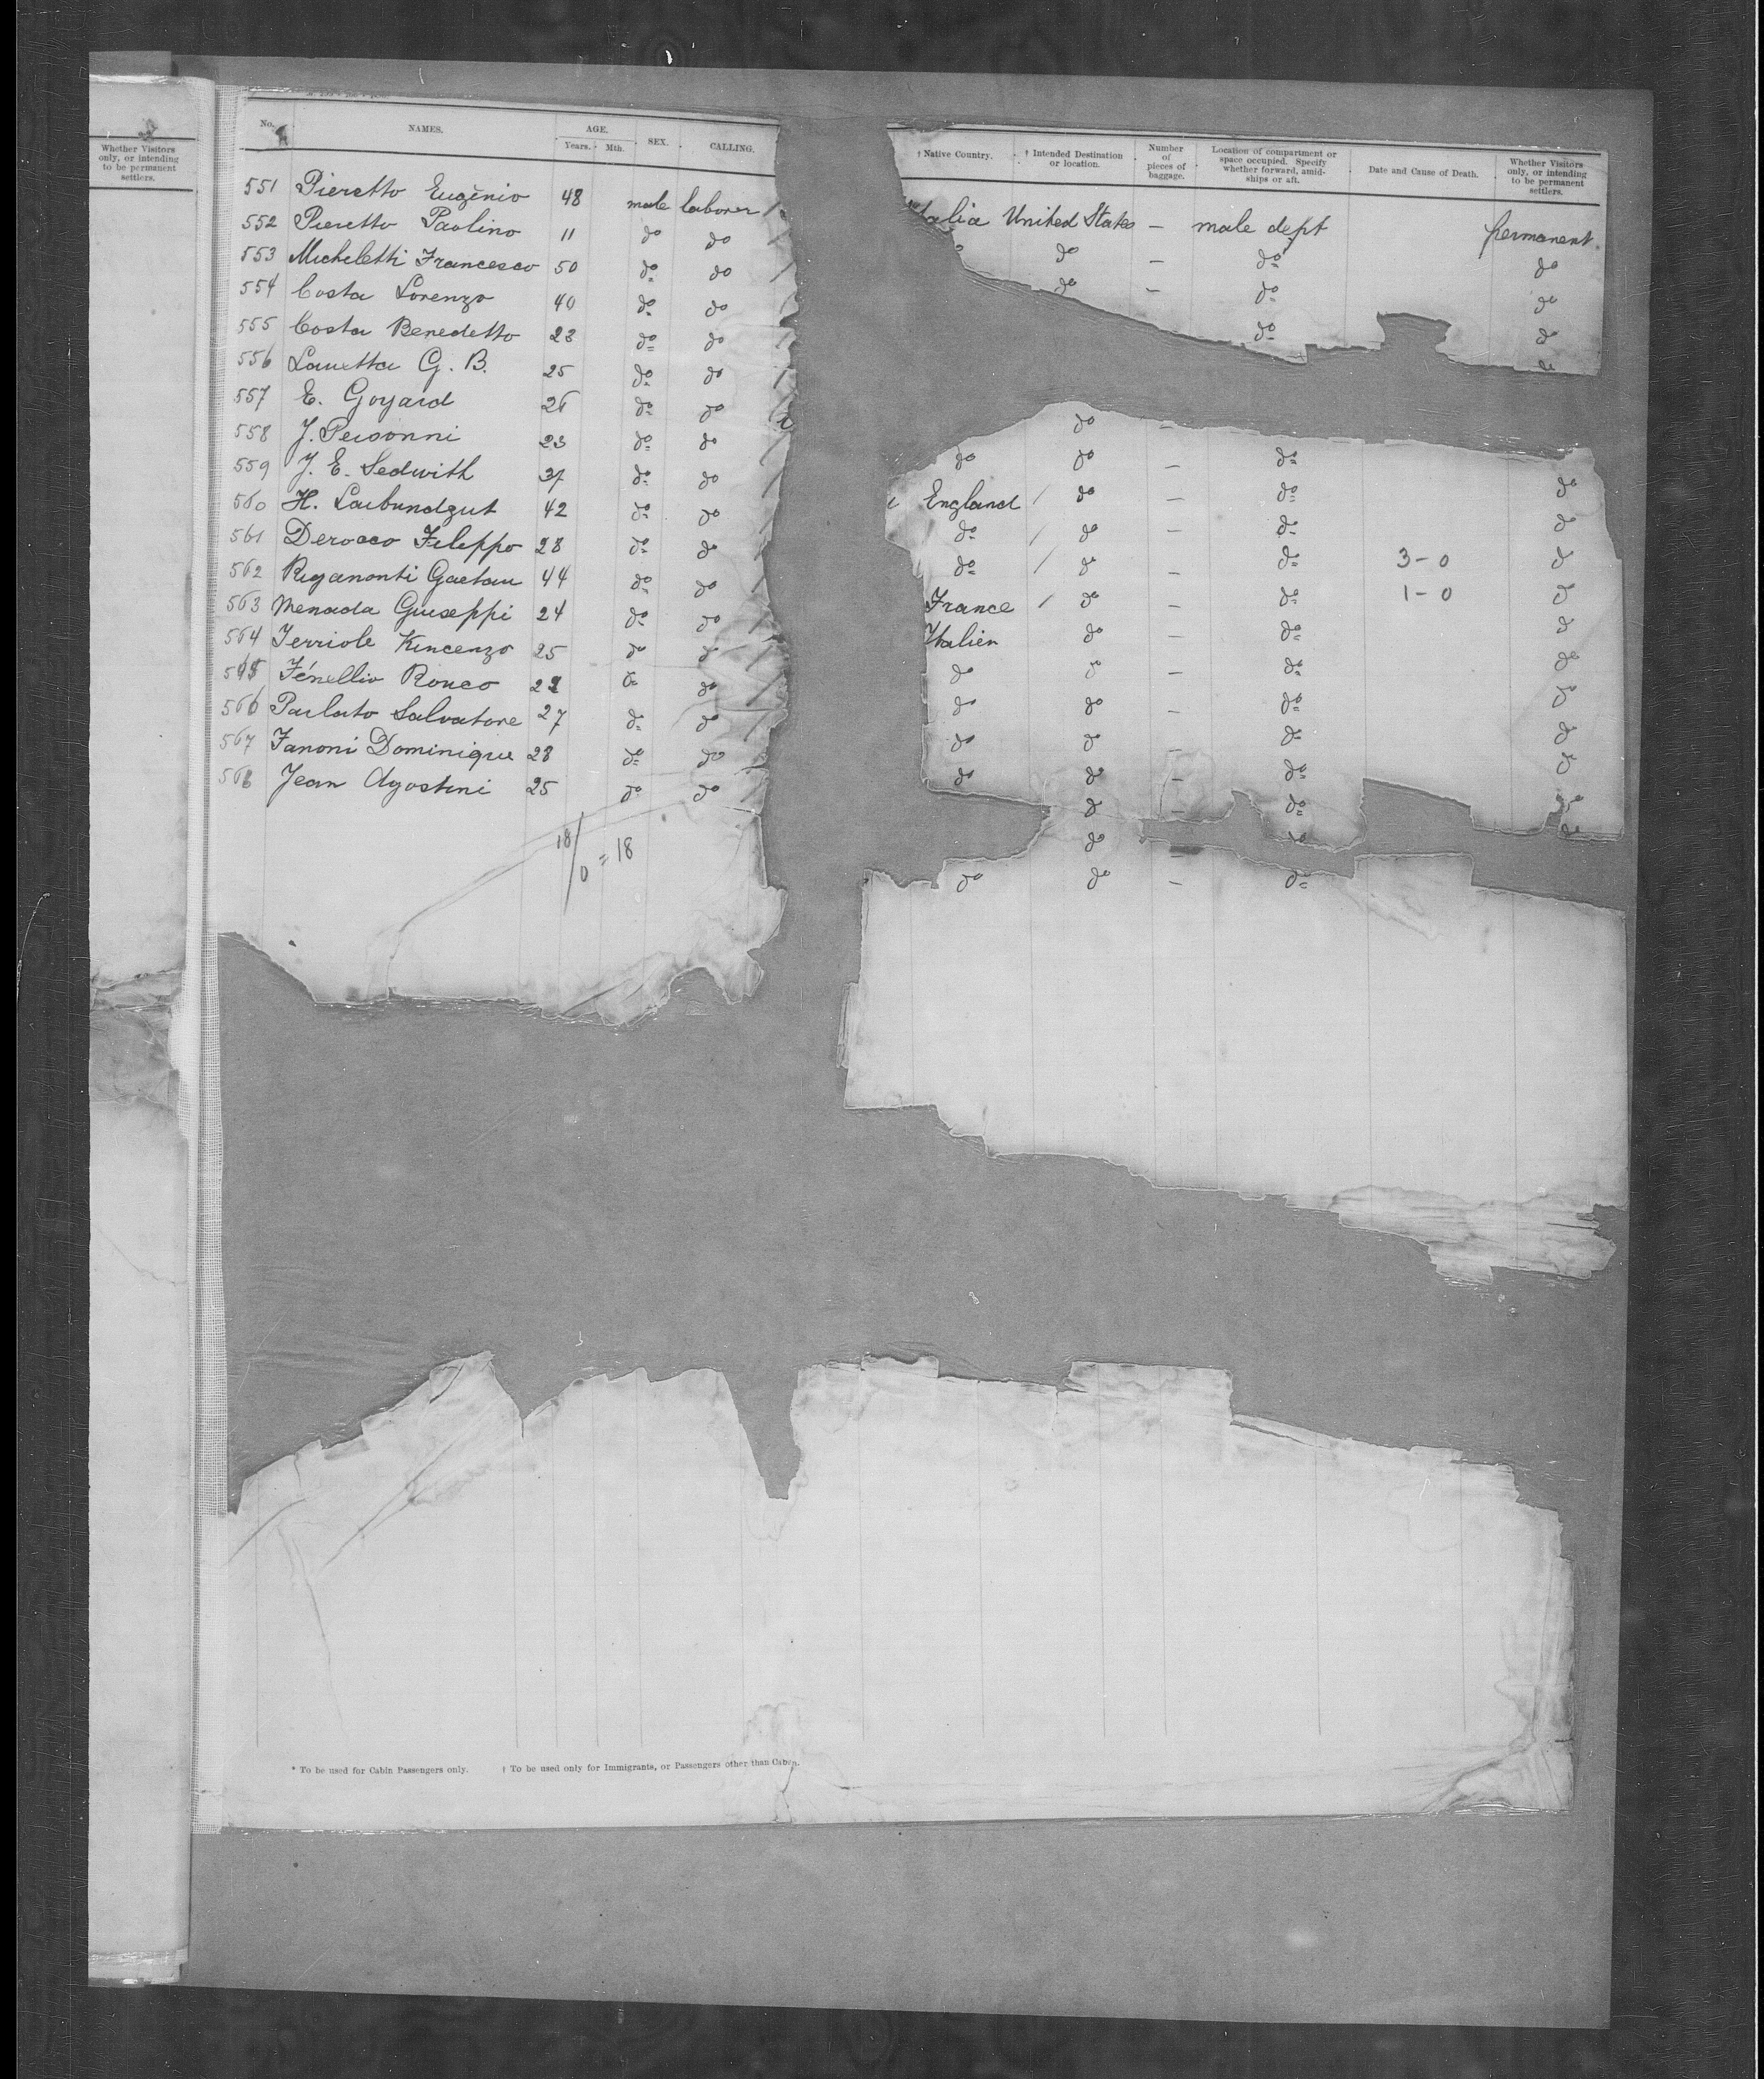 Whether Visitors
only, or intending
to be permanent
settlers.
No. NAMES. AGE. Years. Mth. SEX. CALLING. † Native Country. † Intended Destination or location. Number of pieces of baggage. Location of compartment or space occupied. Specify whether forward, amidships or aft. Date and Cause of Death. Whether Visitors only, or intending to be permanent settlers.
551 Pieretto Eugenio 48 male laborer Italia United States – male dept permanent
552 Pieretto Paolino 11 do do do – do do
553 Micheletti Francesco 50 do do do – do do
554 Costa Lorenzo 40 do do do do
555 Costa Benedetto 23 do do do
556 Lanetta G. B. 25 do do do –
557 E. Goyard 26 do do do do – do do
558 J. Personni 23 do do England do – do do
559 J. E. Sedwith 37 do do do do – do do
560 H. Laubundgut 42 do do do do – do 3-0 do
561 Derocco Fileppo 28 do do France do – do 1-0 do
562 Riganonti Gaetau 44 do do Italien do – do do
563 Menada Giuseppi 24 do do do do – do do
564 Ferriole Kincenzo 25 do do do do – do do
565 Fénellio Rouco do do do do – do do
566 Parlato Salvatore 27 do do do do – do do
567 Fanoni Dominique 28 do do do – do do
568 Jean Agostini 25 do do do – do do
do do – do
18/0 = 18
* To be used for Cabin Passengers only. † To be used only for Immigrants, or Passengers other than Cabin.